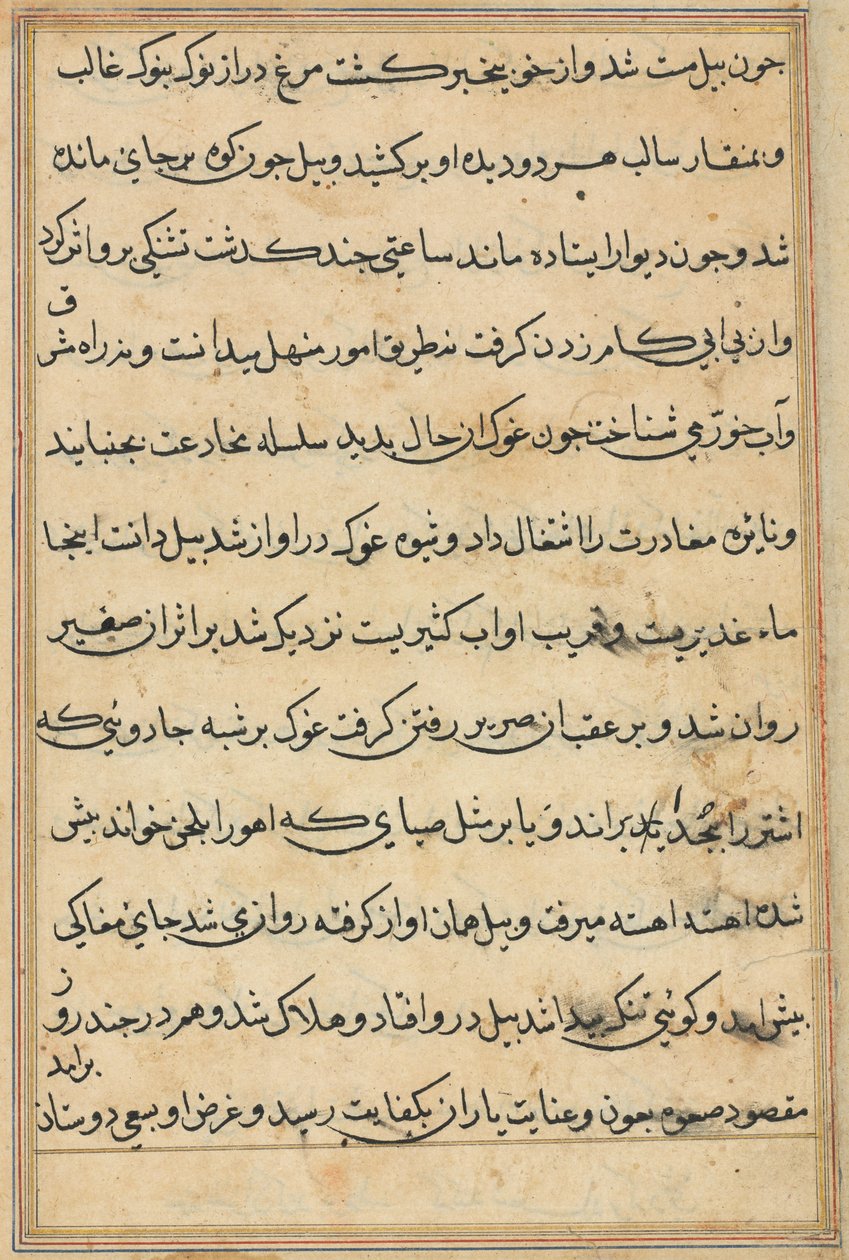 جون بیل مست شد و از خود بیخبر کشت مرغ دراز نوک بنوک غالب
و بمنقار سالب هر دو دیده او بر کشید و بیل جون کوه بر جای مانده
شد و جون دیوار ایستاده ماند ساعتی جند کدشت تشنکی برو اثر کرد
و از بی ابی کام زدن کرفت نه طریق امور منهل میدانست و نه راه مشرق
و آب خور می شناخت جون غوک ان حال بدید سلسله مخادعت بجنبانید
و نایره مغادرت را اشتغال داد و شیوه غوک در اواز شد بیل دانست اینجا
ماء غدیریست و قریب او اب کثیریست نزدیک شد بر اثر ان صفیر
روان شد و بر عقب ان صریر رفتن کرفت غوک بر شبه جادوئی که
اشتر را بحدا براند و یا بر مثل صیای که اهو را بلحن خواند بیش
شده اهسته اهسته میرفت و بیل همان اواز کرفته روان می شد جای مغاکی
بیش امد و کوئی تنک بیدا شد بیل درو افتاد و هلاک شد و هم در جند روز
مقصود صعوه بعون و عنایت یاران بکفایت رسید و غرض او بسعی دوستان
برامد